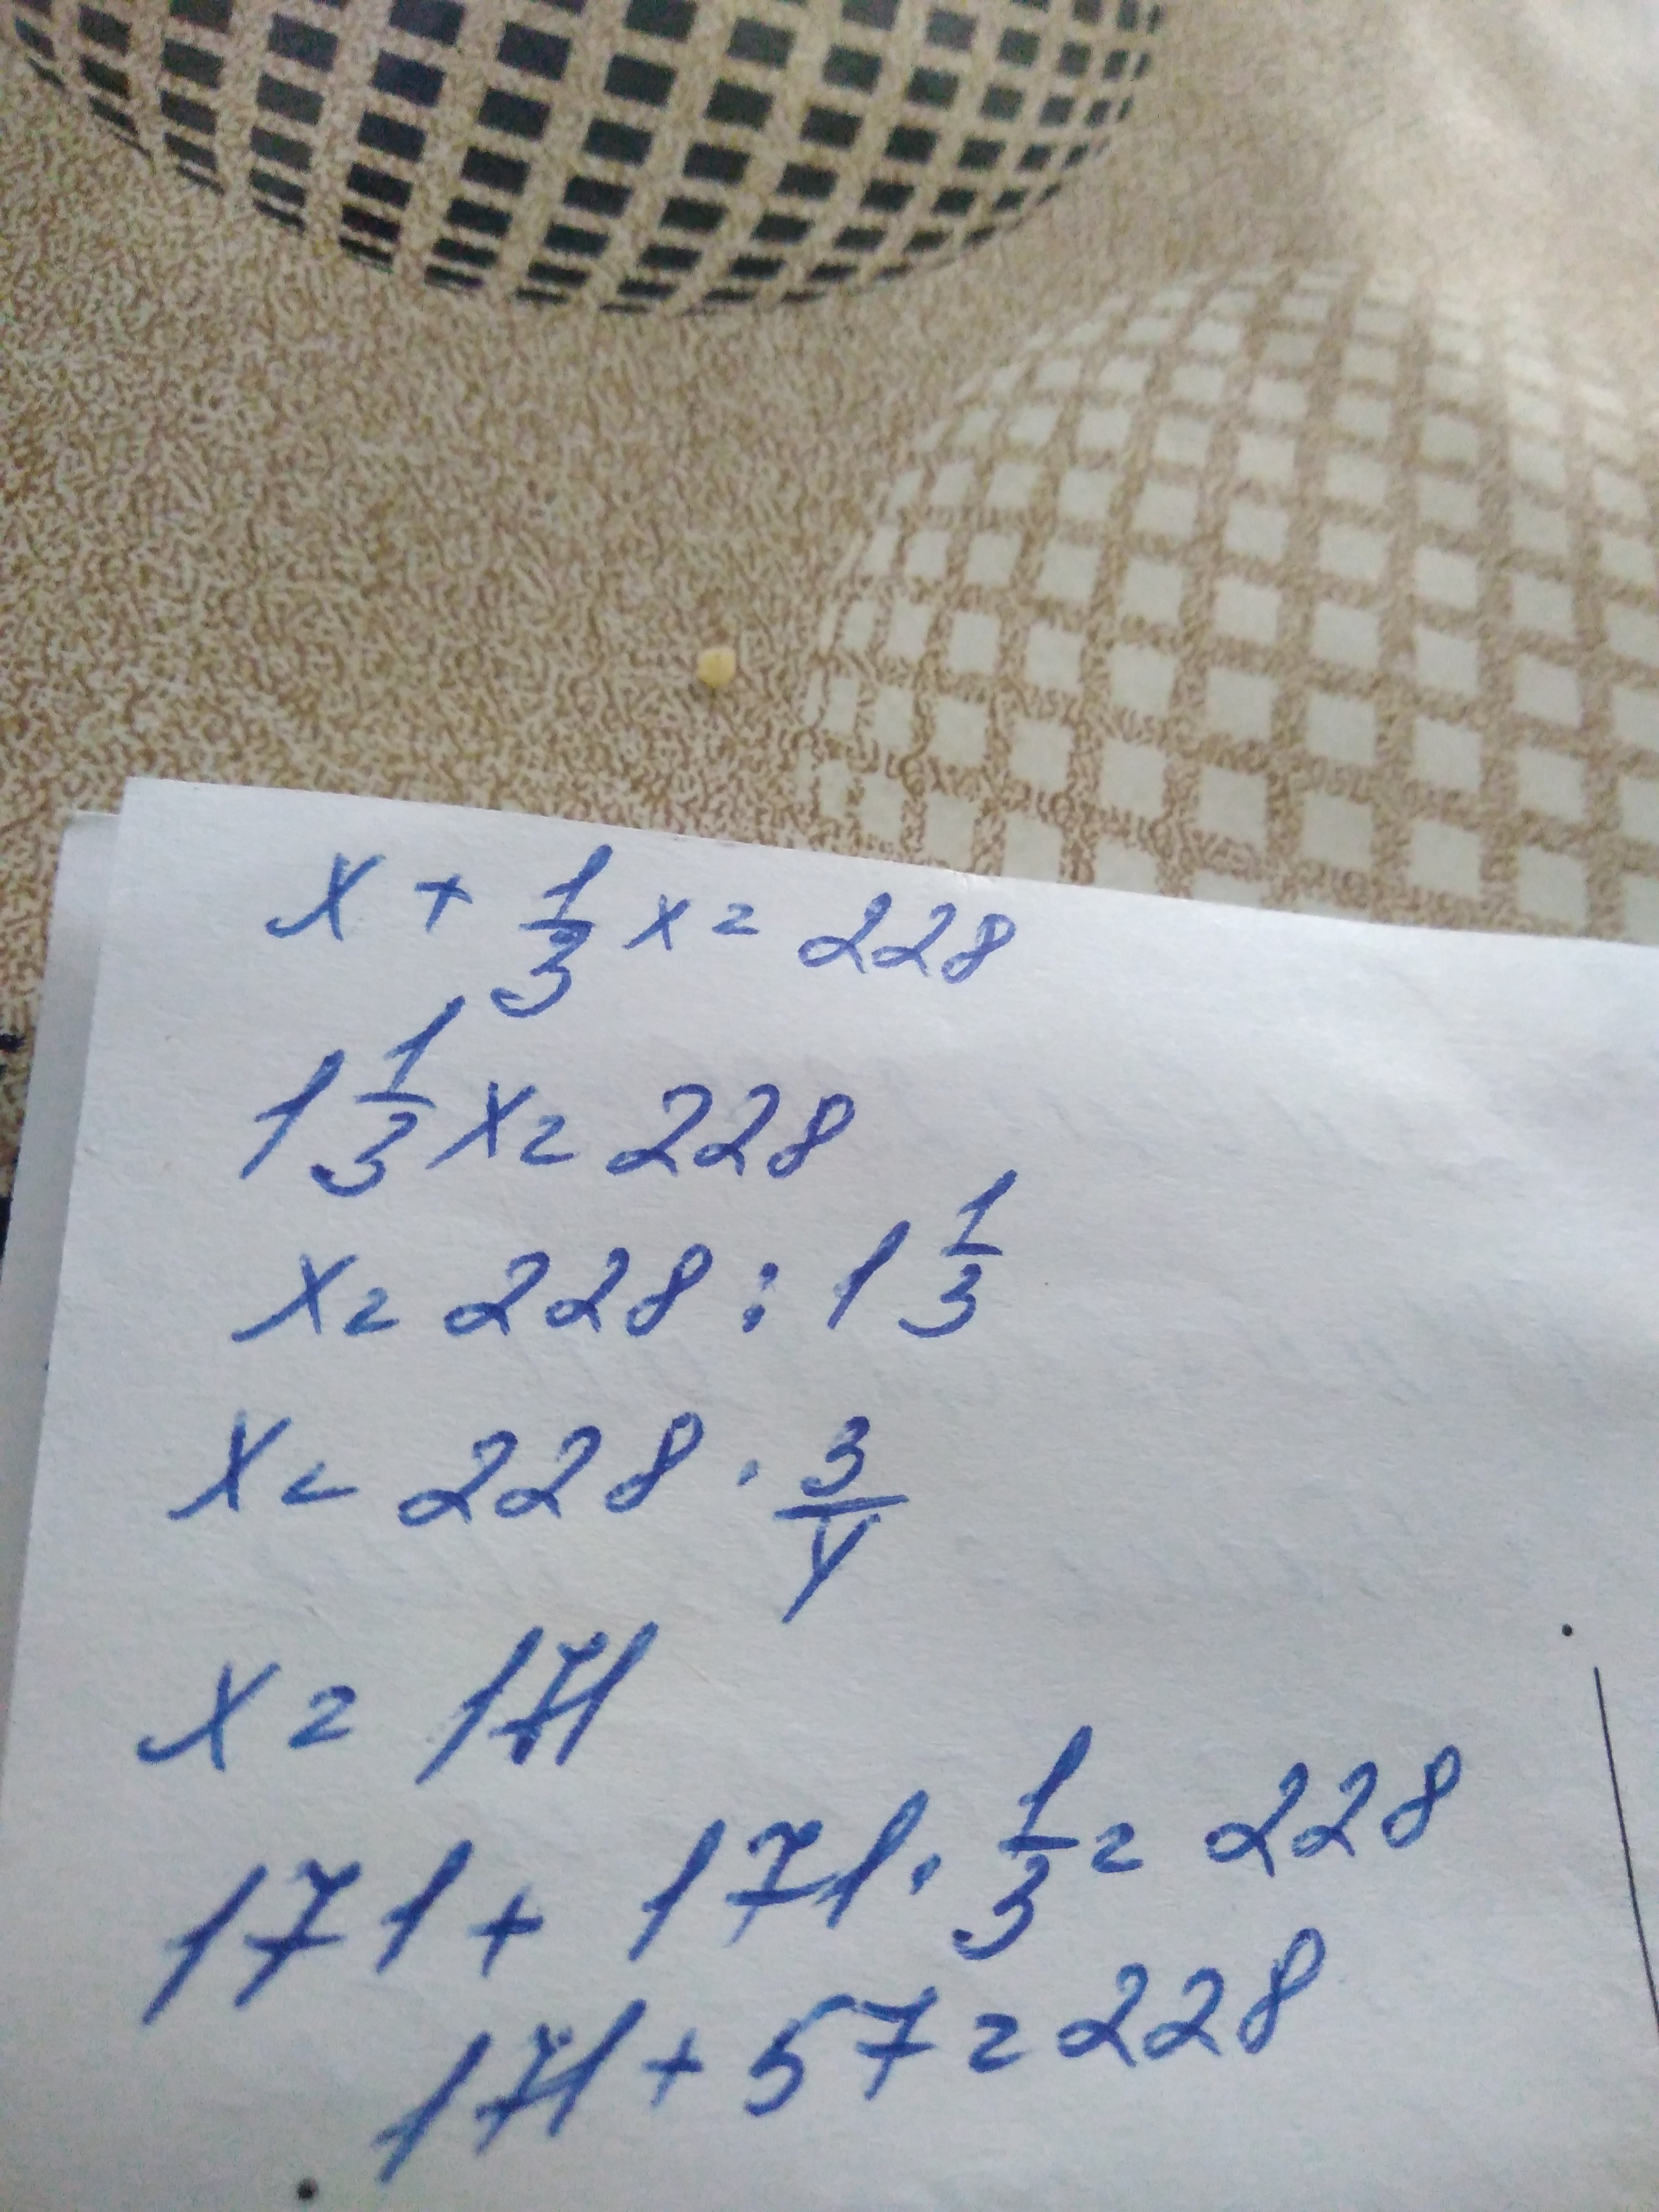 x + 1/3 x = 228
1 1/3 x = 228
x = 228 : 1 1/3
x = 228 · 3/4
x = 171
171 + 171 · 1/3 = 228
171 + 57 = 228